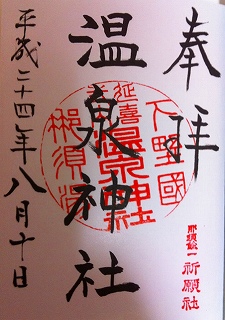 奉拝
下野國
延喜
温泉神社
那須湯
温泉神社
那須余一
祈願社
平成二十四年八月十日